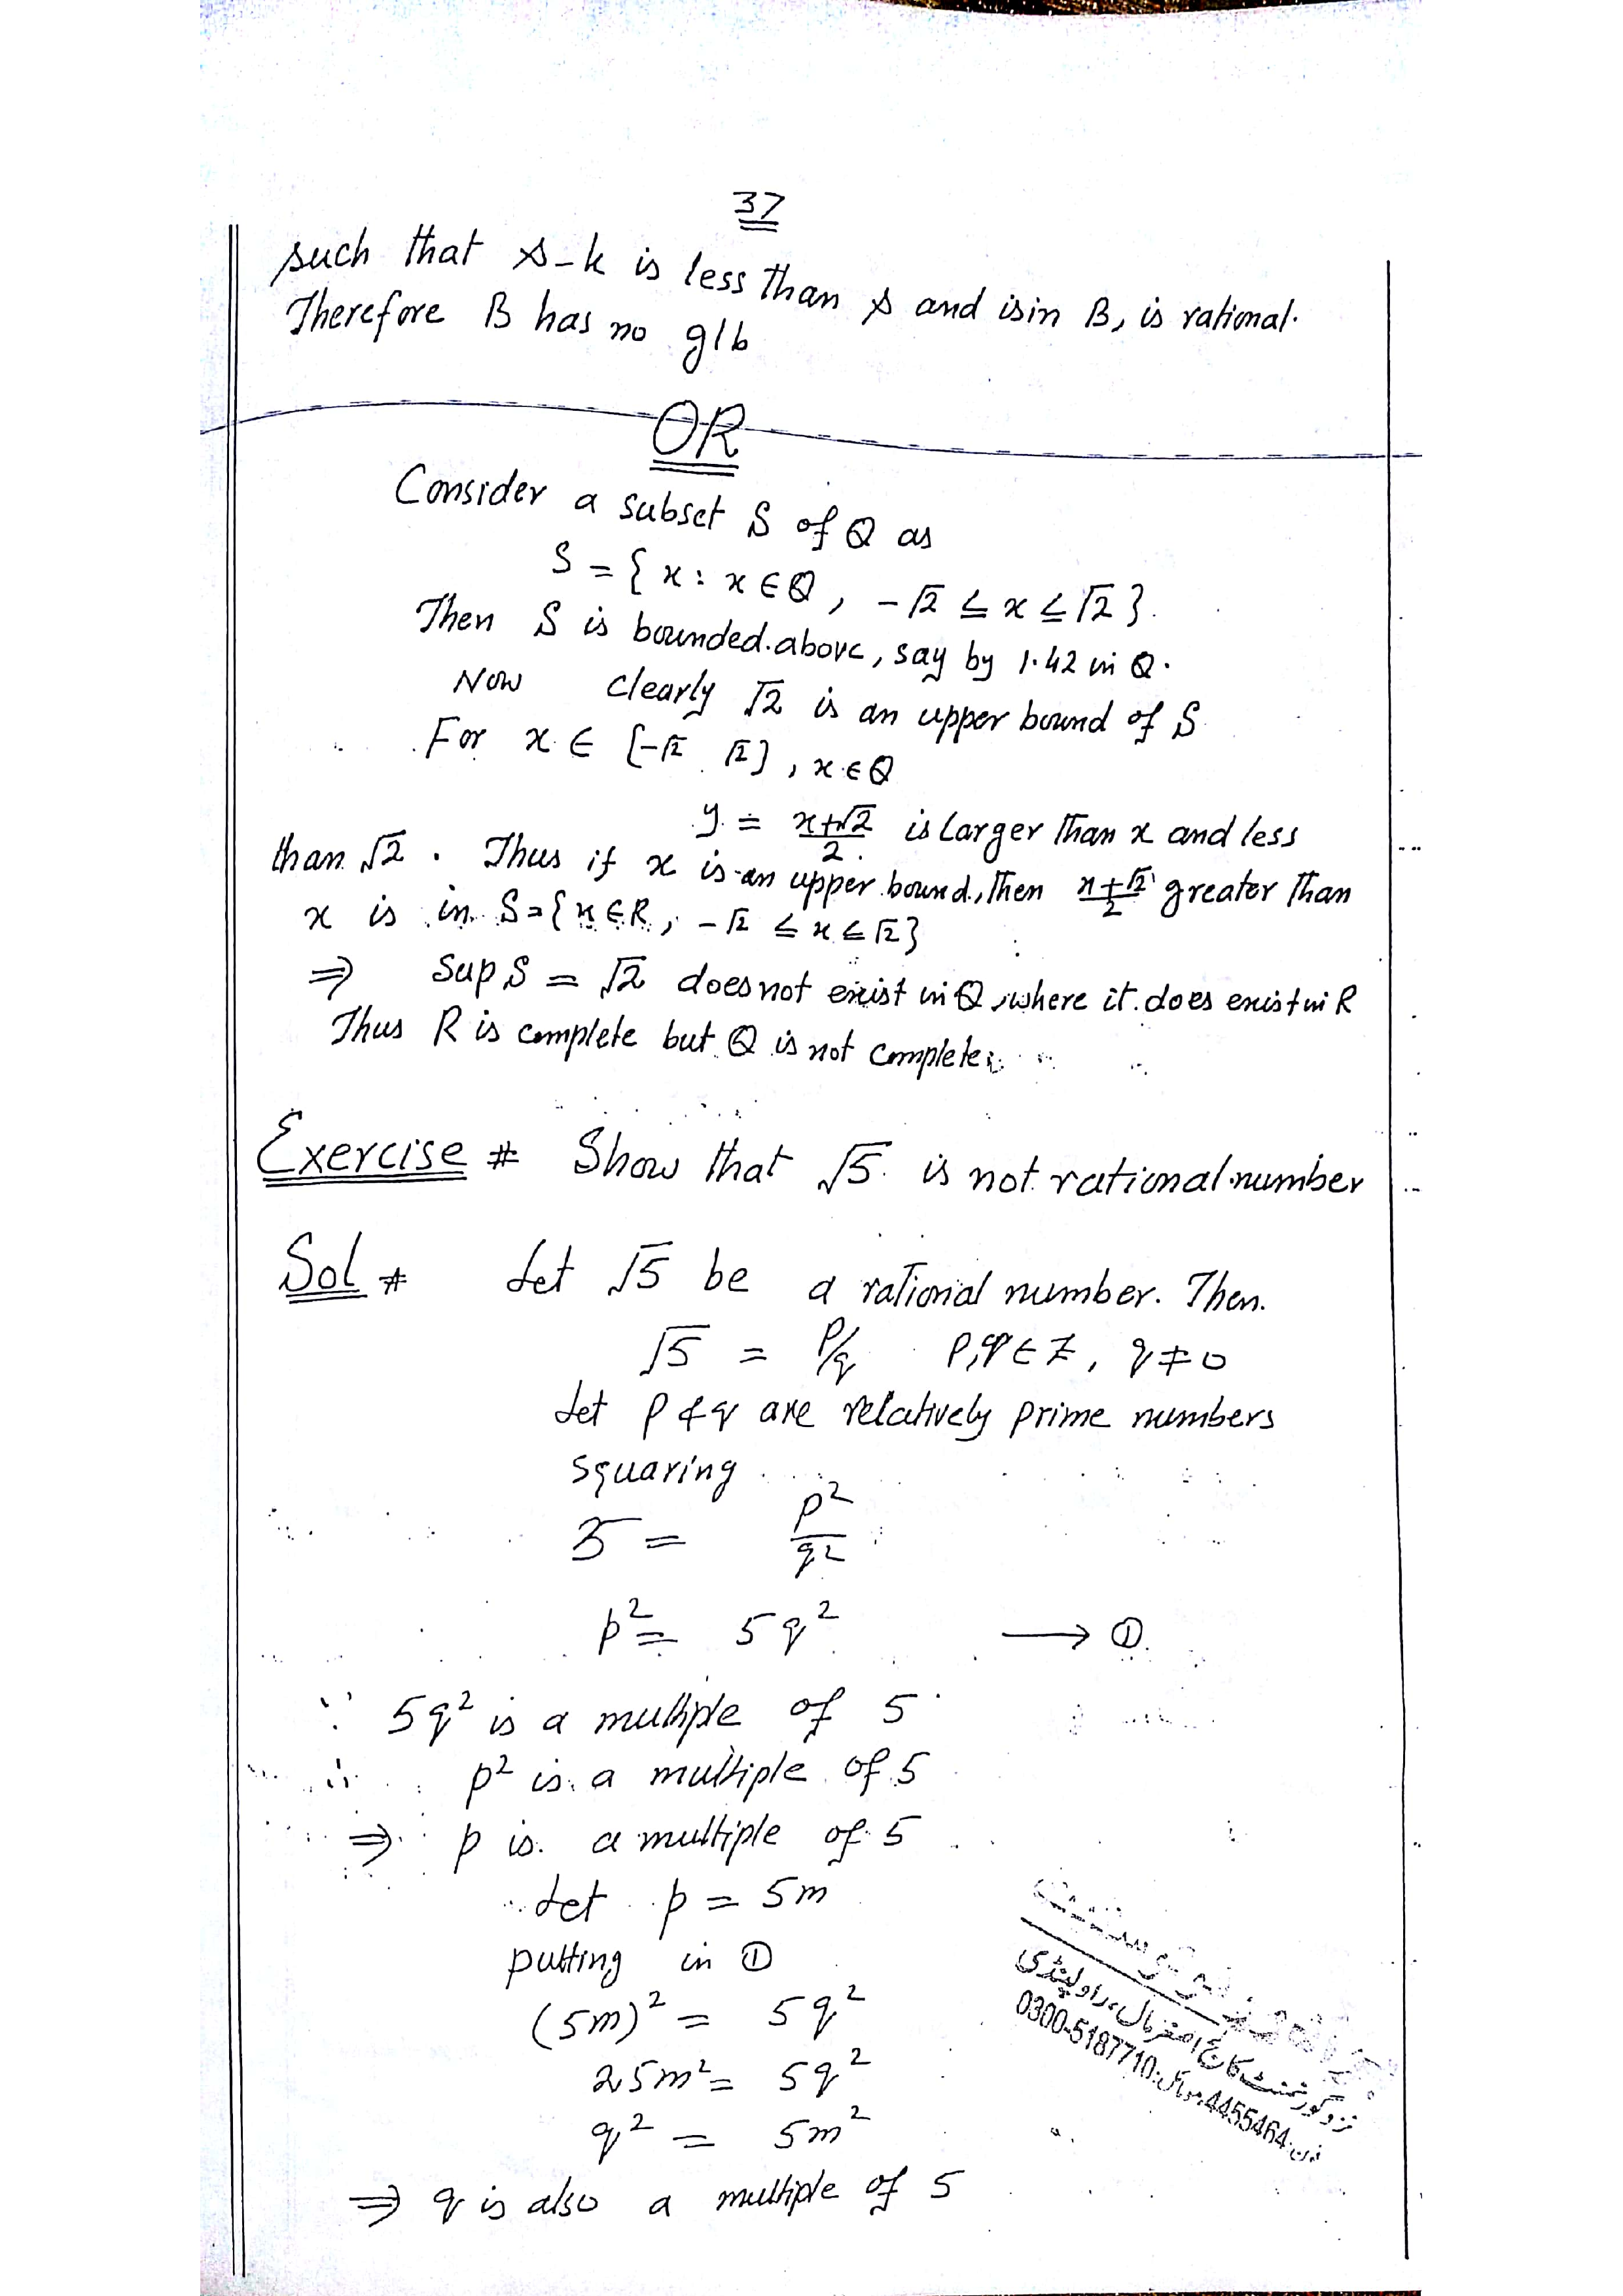 37
such that s-k is less than s and is in B, is rational.
Therefore B has no glb
OR
Consider a subset S of Q as
S = { x : x ∈ Q , -√2 ≤ x ≤ √2 }.
Then S is bounded above, say by 1.42 in Q.
Now clearly √2 is an upper bound of S
For x ∈ [-√2 √2] , x ∈ Q
y = x+√2/2 is larger than x and less
than √2 . Thus if x is an upper bound, then x+√2/2 greater than
x is in S = { x ∈ R , -√2 ≤ x ≤ √2 }
⇒ Sup S = √2 does not exist in Q , where it does exist in R
Thus R is complete but Q is not complete.
Exercise # Show that √5 is not rational number
Sol # Let √5 be a rational number. Then.
√5 = p/q p,q ∈ Z, q ≠ 0
Let p & q are relatively prime numbers
squaring
5 = p²/q²
p² = 5q² → ①
∵ 5q² is a multiple of 5
∴ p² is a multiple of 5
⇒ p is a multiple of 5
Let p = 5m
putting in ①
(5m)² = 5q²
25m² = 5q²
q² = 5m²
⇒ q is also a multiple of 5
نزد گورنمنٹ کالج اصغر مال، راولپنڈی
فون: 4455464 موبائل: 0300-5187710